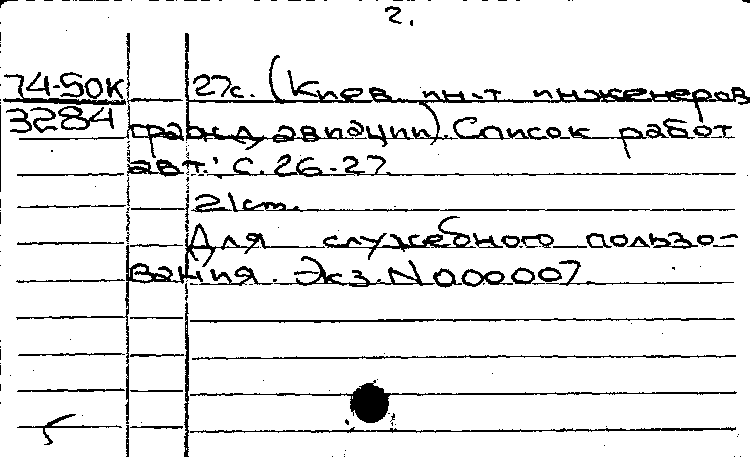 2.
74-50К 27с. (Киев. ин-т инженеров
3284 гражд. авиации). Список работ
авт.: с. 26-27.
21 см.
Для служебного пользо-
вания. Экз. N 000007.
5